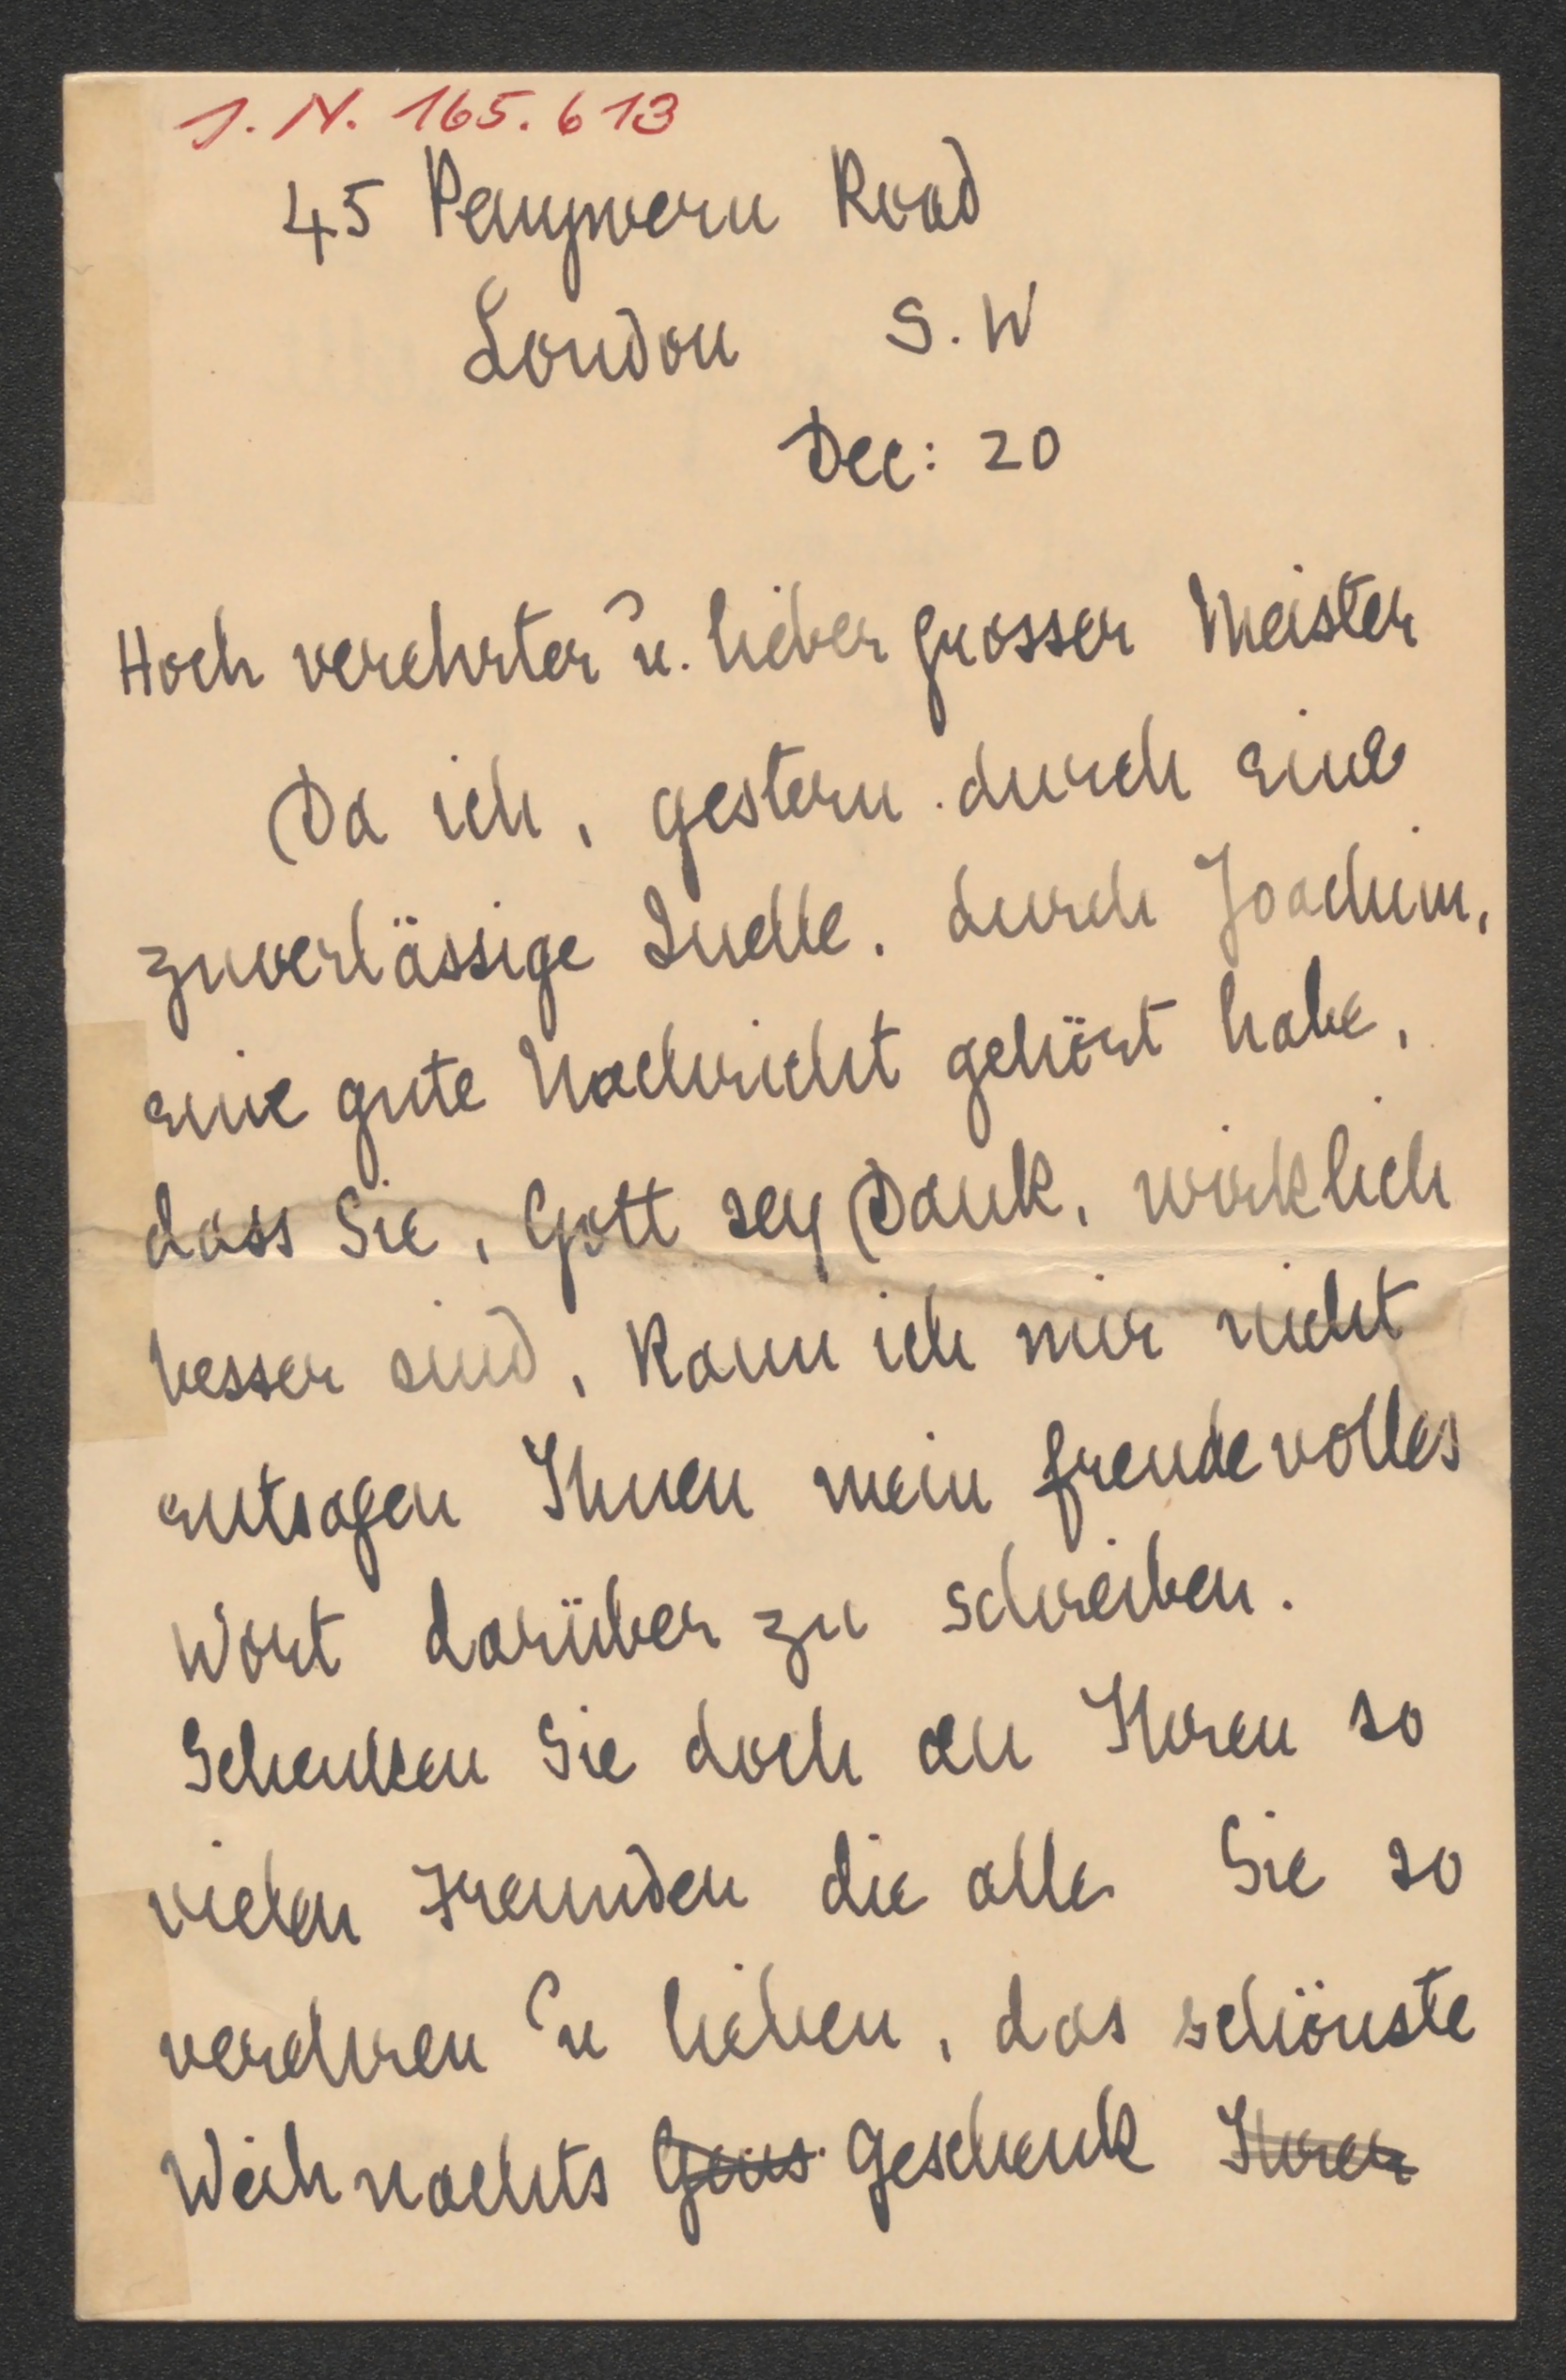 J. N. 165.613
45 Penywern Road
London S. W
Dec: 20
Hoch verehrter u. lieber grosser Meister
Da ich, gestern. durch eine
zuverlässige Quelle. durch Joachim,
eine gute Nachricht gehört habe,
dass Sie, Gott sey Dank, wirklich
besser sind, kann ich mir nicht
entsagen Ihnen mein freudevolles
Wort darüber zu schreiben.
Schenken Sie doch an Ihren so
vielen Freunden die alle Sie so
verehren u lieben, das schönste
Weihnachts Geschenk Ihren